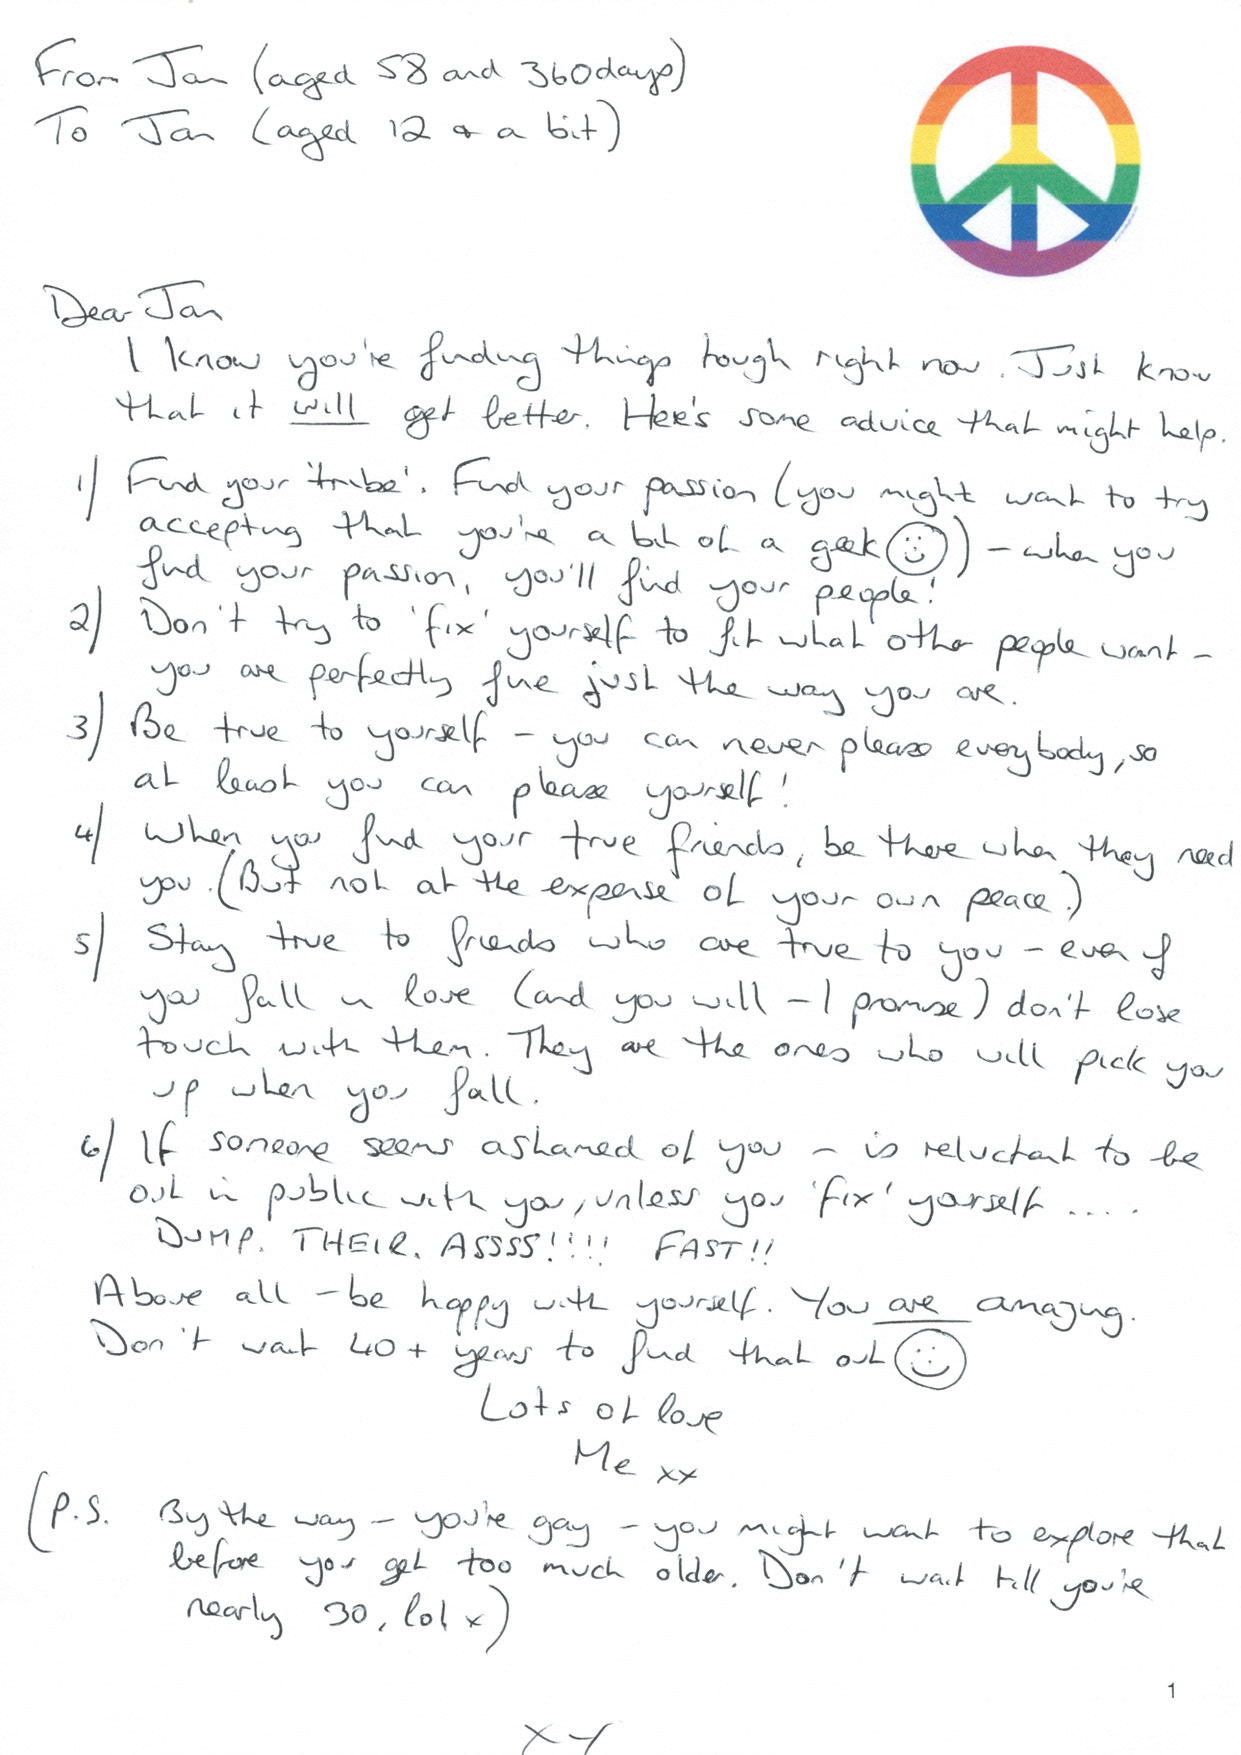 From Jan (aged 58 and 360days)
To Jan (aged 12 & a bit)
Dear Jan
I know you're finding things tough right now. Just know
that it will get better. Here's some advice that might help.
1) Find your 'tribe'. Find your passion (you might want to try
accepting that you're a bit of a geek ) – when you
find your passion, you'll find your people!
2) Don't try to 'fix' yourself to fit what other people want –
you are perfectly fine just the way you are.
3) Be true to yourself – you can never please everybody, so
at least you can please yourself!
4) When you find your true friends, be there when they need
you. (But not at the expense of your own peace.)
5) Stay true to friends who are true to you – even if
you fall in love (and you will – I promise) don't lose
touch with them. They are the ones who will pick you
up when you fall.
6) If someone seems ashamed of you – is reluctant to be
out in public with you, unless you 'fix' yourself ....
DUMP. THEIR. ASSSS!!!! FAST!!
Above all – be happy with yourself. You are amazing.
Don't wait 40+ years to find that out
Lots of love
Me xx
(P.S. By the way – you're gay – you might want to explore that
before you get too much older. Don't wait till you're
nearly 30, lol x)
1